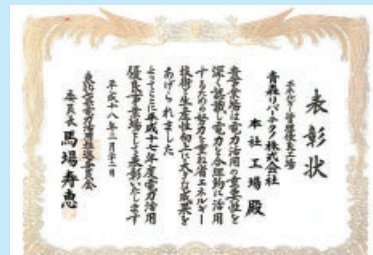 表彰状
エネルギー管理優良工場
青森リバーテクノ株式会社
本社工場殿
貴事業場は電力活用の重要性を
深く認識し電力を合理的に活用
するための努力を重ね省エネルギー
技術と生産性向上に大きな成果を
あげられました
よってここに平成十七年度電力活用
優良事業場として表彰いたします
平成十八年二月十二日
東北地区電力活用推進委員会
委員長 馬場寿恵